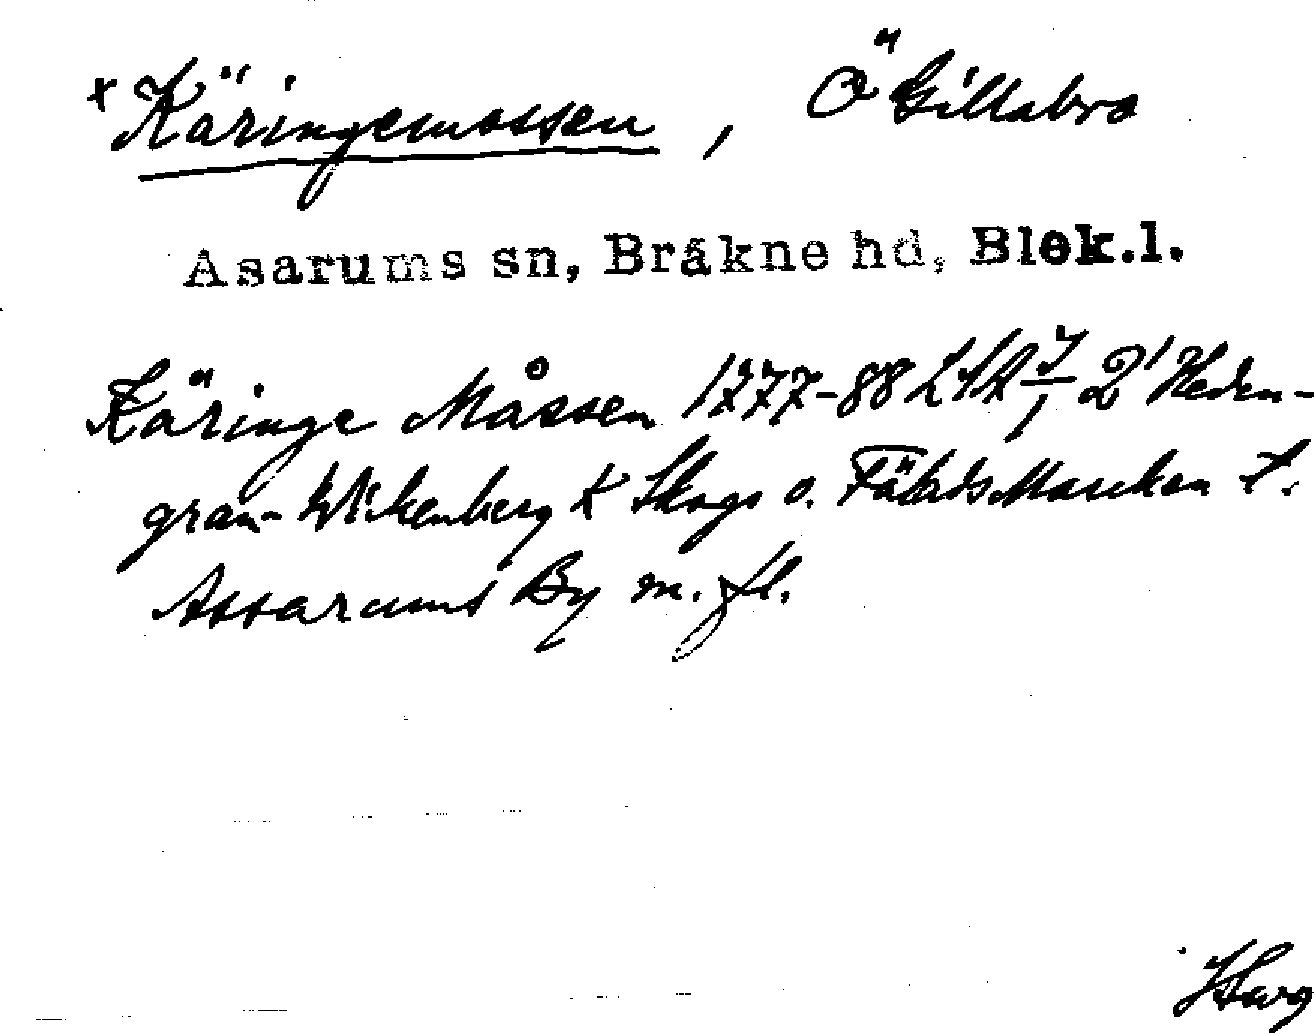 × Käringemossen, Ö Gillabro
Asarums sn, Bräkne hd, Blek.l.
Käringe Måssen 1777-88 LSA 2' Heden-
gran-Wikenberg K Skogs o. Fälads Marken t.
Assarums By m. fl.